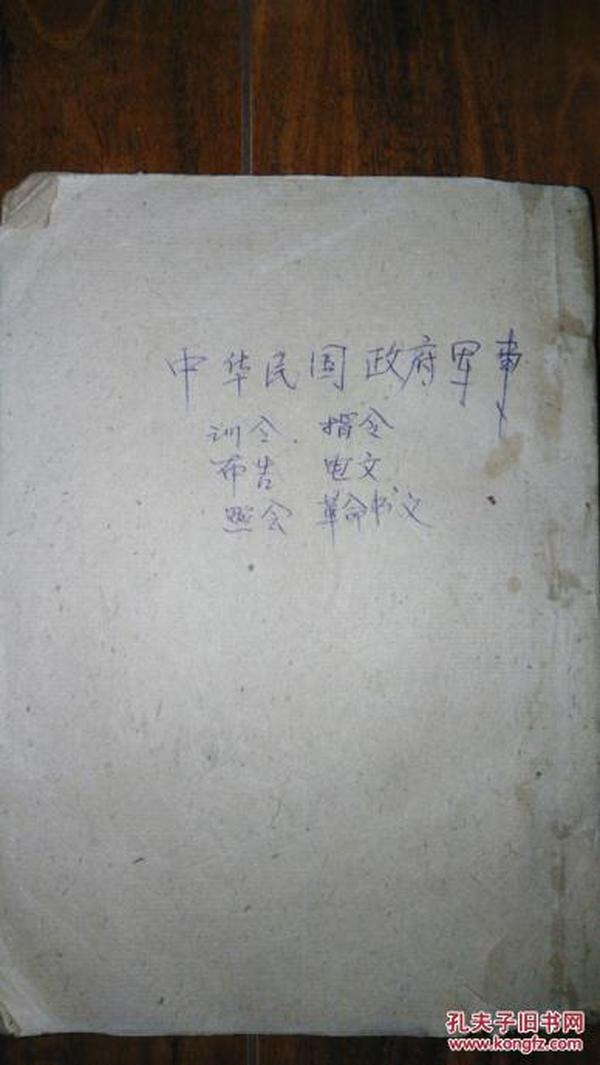 中华民国政府军事
训令、指令
布告 电文
照会 革命书文
孔夫子旧书网
www.kongfz.com